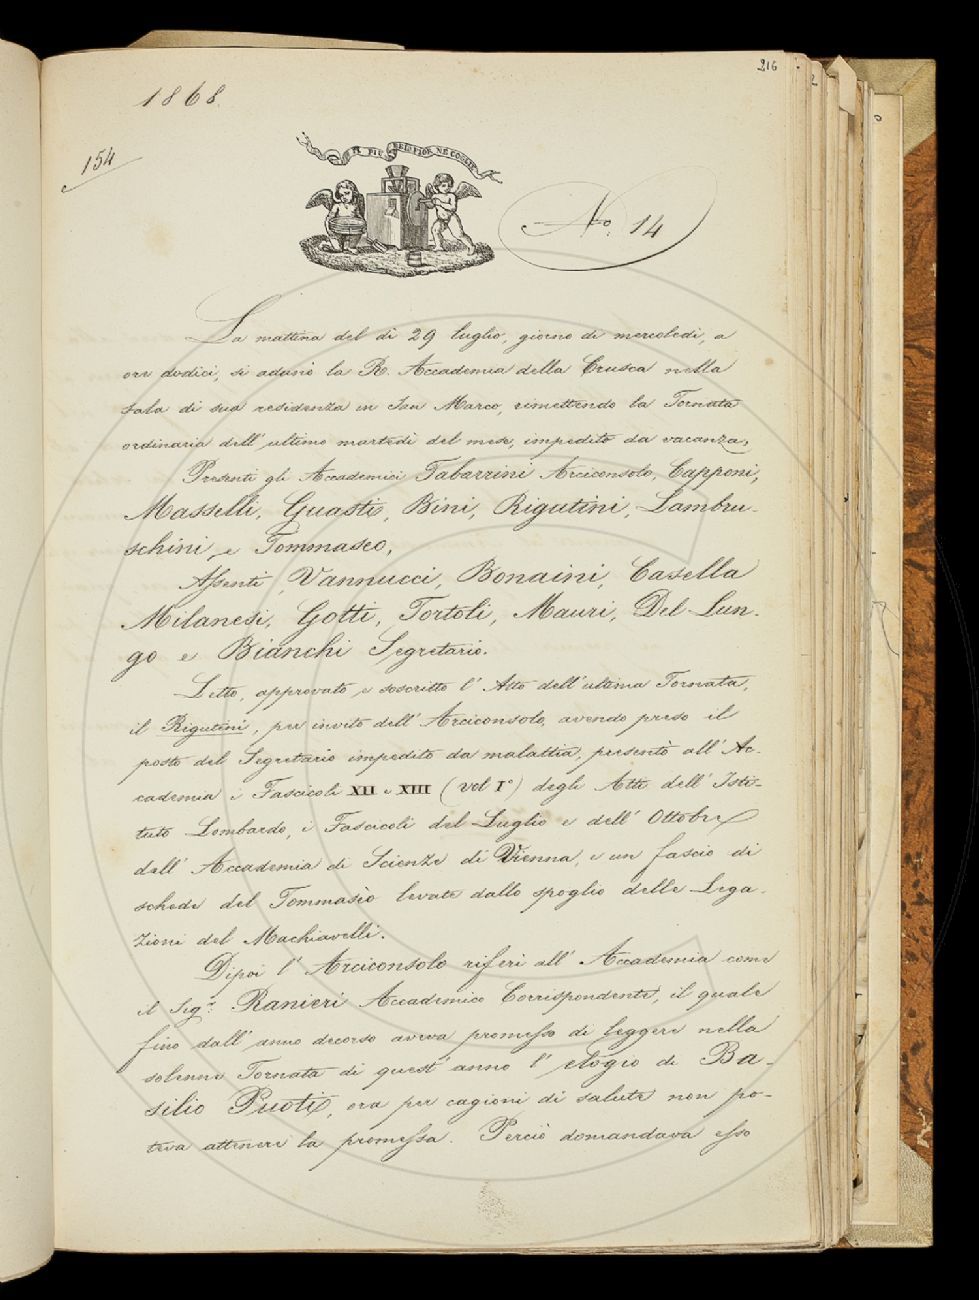 216
1868.
154
IL PIÙ BEL FIOR NE COGLIE
No. 14
La mattina del dì 29 luglio, giorno di mercoledì, a
ore dodici, si adunò la R. Accademia della Crusca nella
sala di sua residenza in San Marco, rimettendo la Tornata
ordinaria dell'ultimo martedì del mese, impedito da vacanza.
Presenti gli Accademici Tabarrini Arciconsolo, Capponi,
Masselli, Guasti, Bini, Rigutini, Lambru-
schini, e Tommaseo,
Assenti, Vannucci, Bonaini, Casella
Milanesi, Gotti, Tortoli, Mauri, Del-Lun-
go e Bianchi Segretario.
Letto, approvato e soscritto l'Atto dell'ultima Tornata,
il Rigutini, per invito dell'Arciconsolo, avendo preso il
posto del Segretario impedito da malattia, presentò all'Ac-
cademia i Fascicoli XII e XIII (vol I°) degli Atti dell'Isti-
tuto Lombardo, i Fascicoli del Luglio e dell'Ottobre
dell'Accademia di Scienze di Vienna, e un fascio di
schede del Tommasèo levate dallo spoglio delle Lega-
zioni del Machiavelli.
Dipoi l'Arciconsolo riferì all'Accademia come
il Sigr. Ranieri Accademico Corrispondente, il quale
fino dall'anno decorso aveva promesso di leggere nella
solenne Tornata di quest'anno l'elogio di Ba-
silio Puoti, ora per cagioni di salute non po-
teva attenere la promessa. Perciò domandava esso